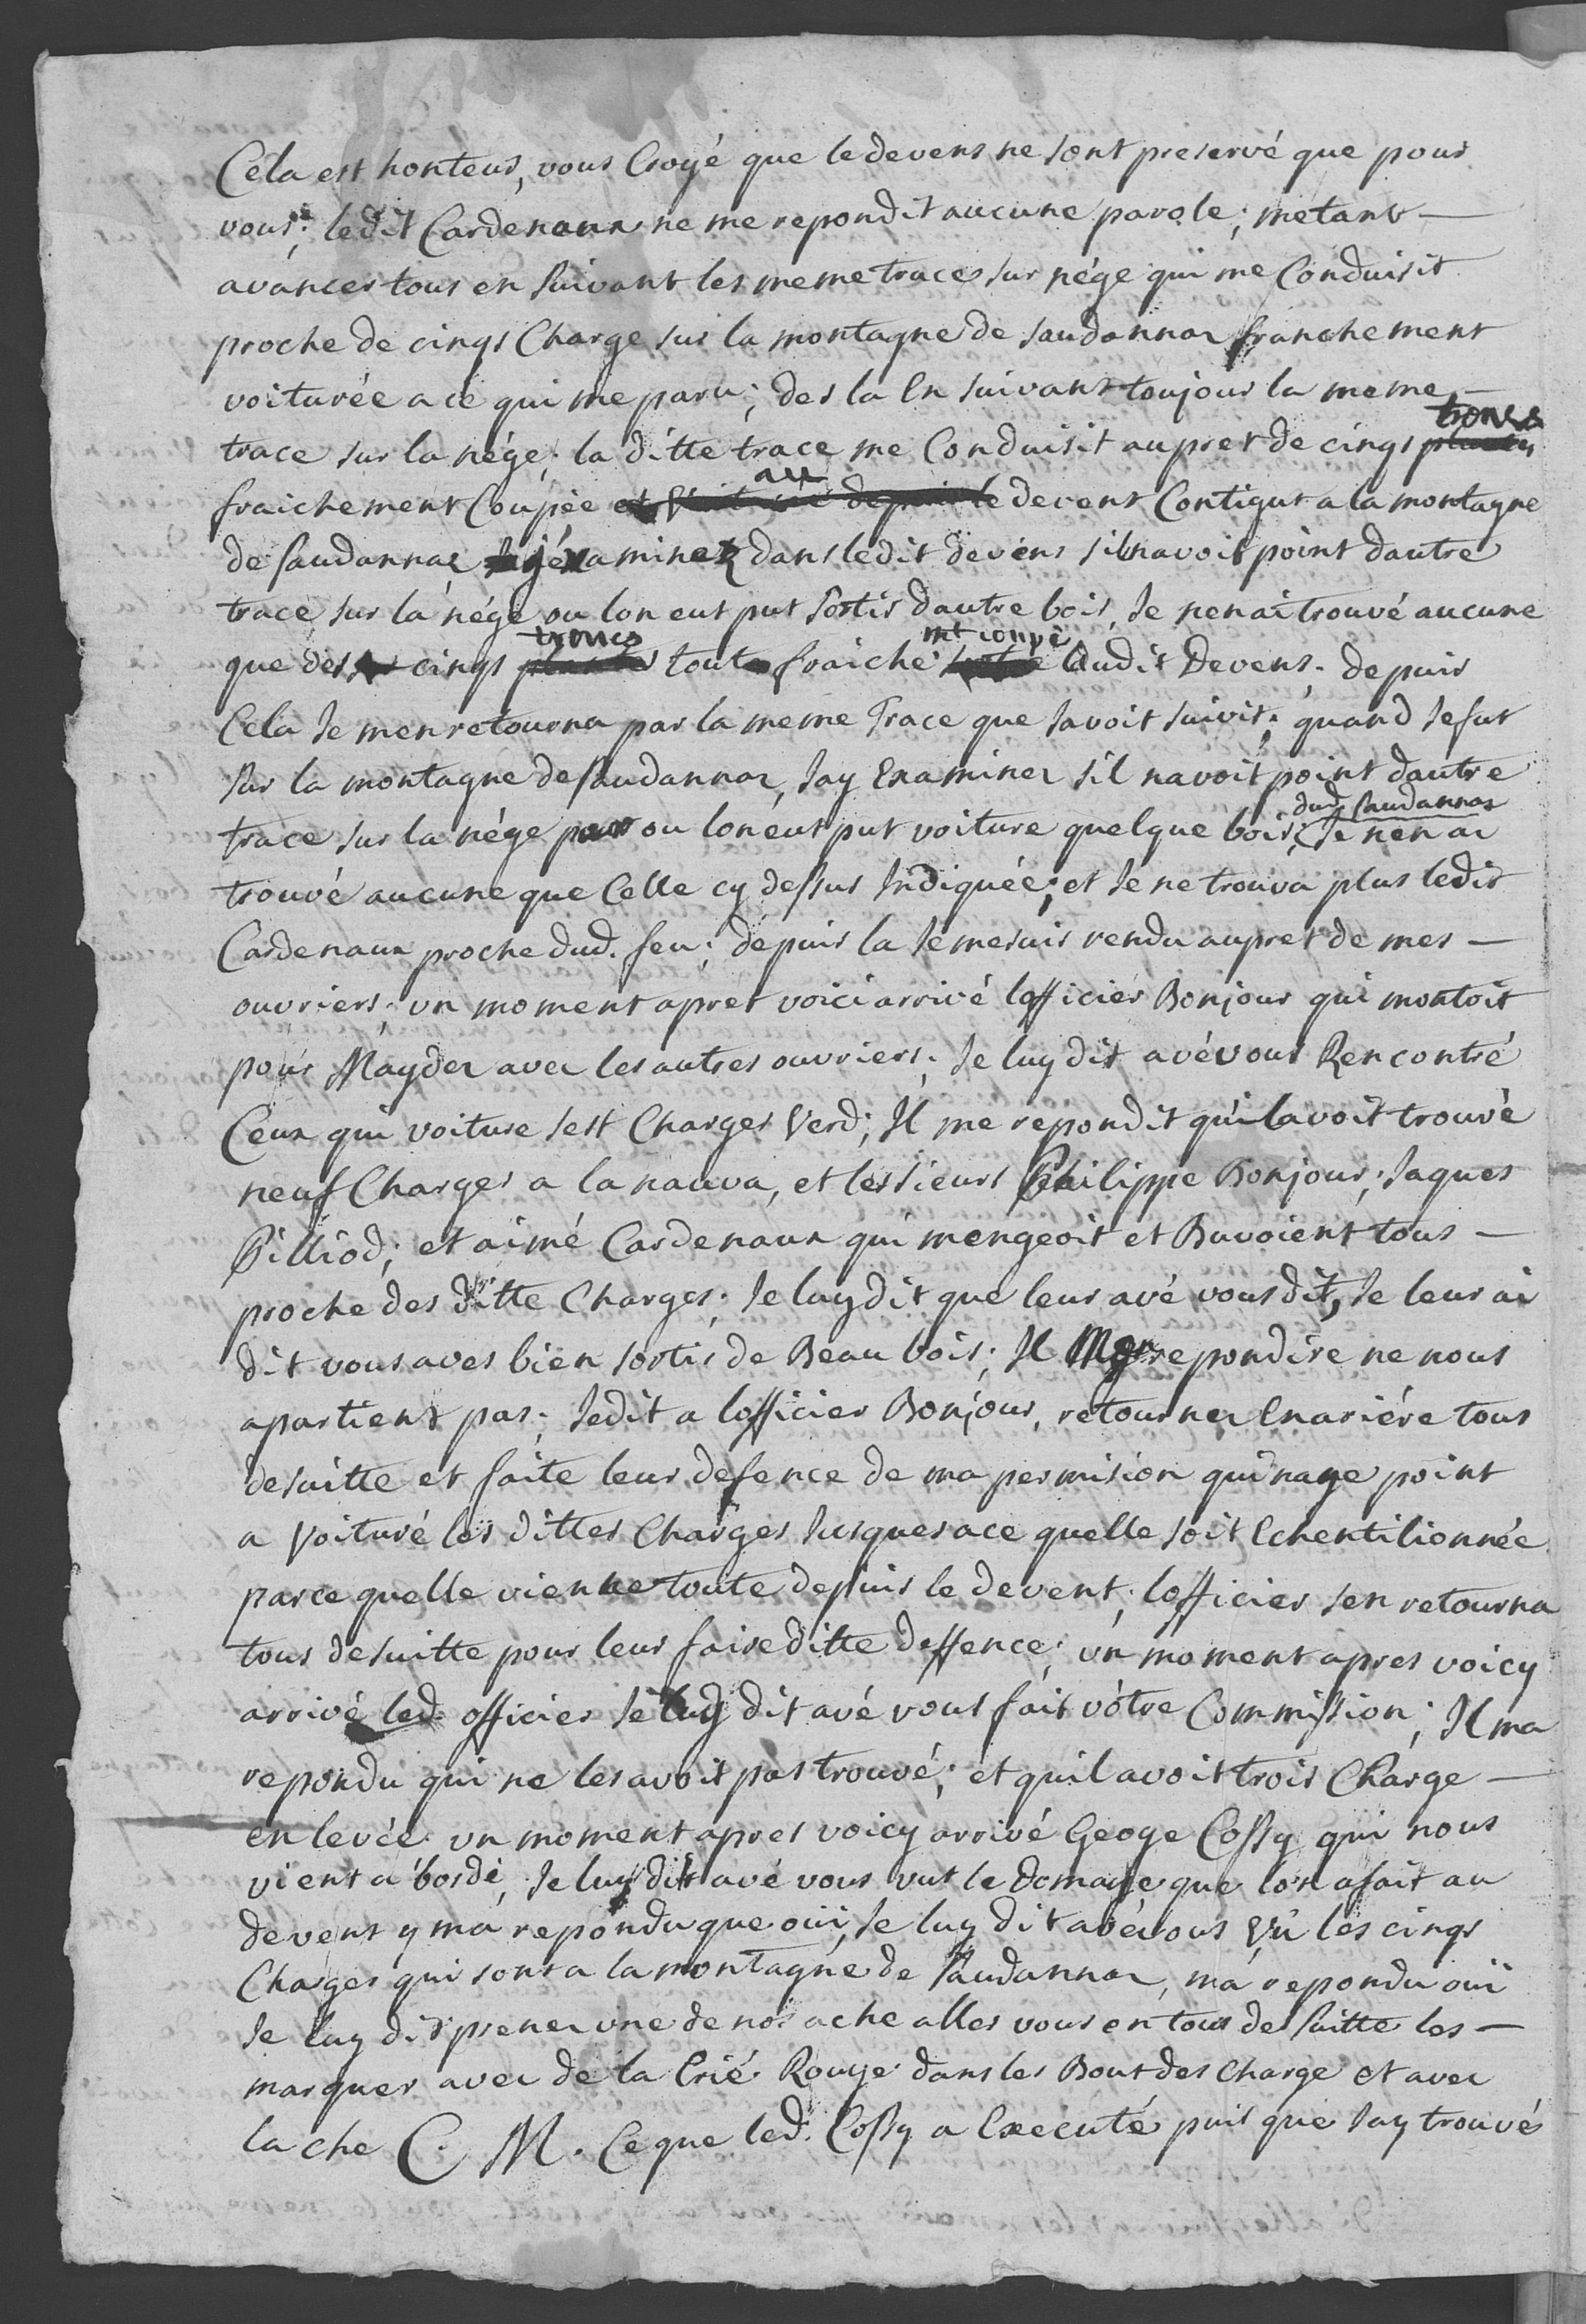 Cela est honteus, vous Croyé que le devens ne sont preservé que pour
vous; ledit Cardenaux ne me repondit aucune parole; metant
avancer tous en suivant les meme traces sur nége qui me Conduisit
proche de cinqs Charge sur la montagne de saudannaz franchement
voiturée a ce qui me paru; des la En suivant toujour la meme
trace sur la nége; la ditte trace me Conduisit aupret de cinqs troncs
fraichement Coupée au devent Contigut a la montagne
de saudannaz jéxaminez dans ledit devens sil navoit point dautre
trace sur la nége ou lon eut put sortir dautre bois, Je nenai trouvé aucune
que des cinqs troncs tout fraiche mt coupé Audit Devens; depuis
Cela Je men retourna par la meme Trace que Javoit suivit; quand Je fut
sur la montagne de saudannaz, Jay Examinez sil navoit point dautre
trace sur la nége par ou lon eut put voiture quelque bois dud. saudannaz Je nen ai
trouvé aucune que Celle cy dessus Indiquée; et Je ne trouva plus ledit
Cardenaux proche dud. feu; depuis la Je me suis rendu aupret de mes
ouvriers; un moment apret voici arrivé lofficier Bonjour qui montoit
pour Mayder avec les autres ouvriers; Je luy dit avévous Rencontré
Ceux qui voiture sest Charges Verd; Il me repondit quilavoit trouvé
neuf Charges a la nauva, et les sieurs Philippe Bonjour, Jaques
Pilliod; et aimé Cardenaux qui mengeoit et Buvoient tous
proche des ditte Charges; Je luy dit que leur avé vous dit, Je leur ai
dit vous aves bien sortir de Beau bois; Il repondire ne nous
apartient pas; Je dit a lofficier Bonjour, retourner Enariére tous
desuitte et faite leur defence de ma permision quinaye point
a Voituré les dittes Charges Jusques ace quelle soit Echentilionnée
parce quelle vienne toute depuis le devent; lofficier sen retourna
tous desuitte pour leur faire ditte deffence; un moment apres voicy
arrivé led. officier Je luy dit avé vous fait vôtre Commission; Il ma
repondu qui ne les avoit pas trouvé; et quil avoit trois Charge
enlevée un moment apres voicy arrivé Geoge Cossy qui nous
vient a bordé, Je luy dit avé vous vut le Domage que lon afait au
devent y ma repondu que oüi, Je luy dit avévous Vû les cinqs
Charges qui sont a la montagne de saudannaz, ma repondu oui
Je luy dit prenez une de nos ache alles vous en tous de suitte les
marquer avec de la Crié Rouge dans les Bout des Charge et avec
la che C. M. Ce que led. Cossy a Executé puis que Jay trouvés